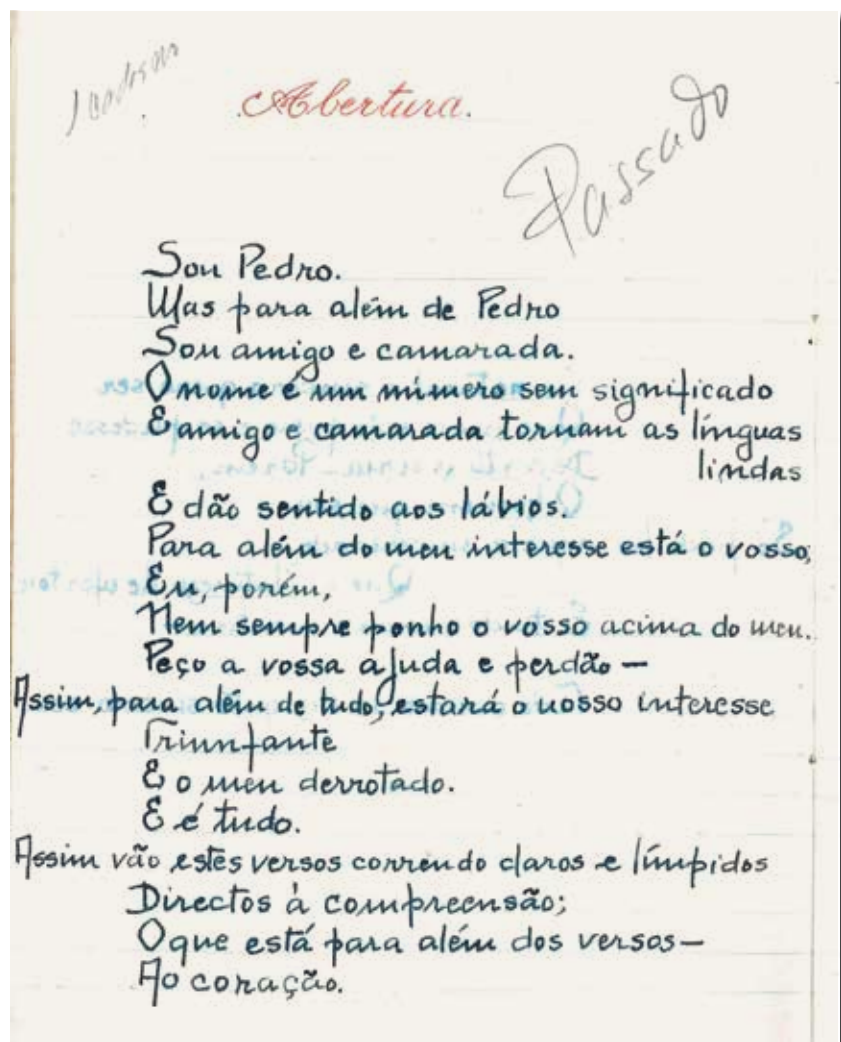 Abertura.
Passado
Sou Pedro.
Mas para além de Pedro
Sou amigo e camarada.
O nome é um número sem significado
E amigo e camarada tornam as línguas
lindas
E dão sentido aos lábios.
Para além do meu interesse está o vosso;
Eu, porém,
Nem sempre ponho o vosso acima do meu.
Peço a vossa ajuda e perdão —
Assim, para além de tudo, estará o nosso interesse
Triunfante
E o meu derrotado.
E é tudo.
Assim vão estes versos correndo claros e límpidos
Directos à compreensão;
O que está para além dos versos —
Ao coração.